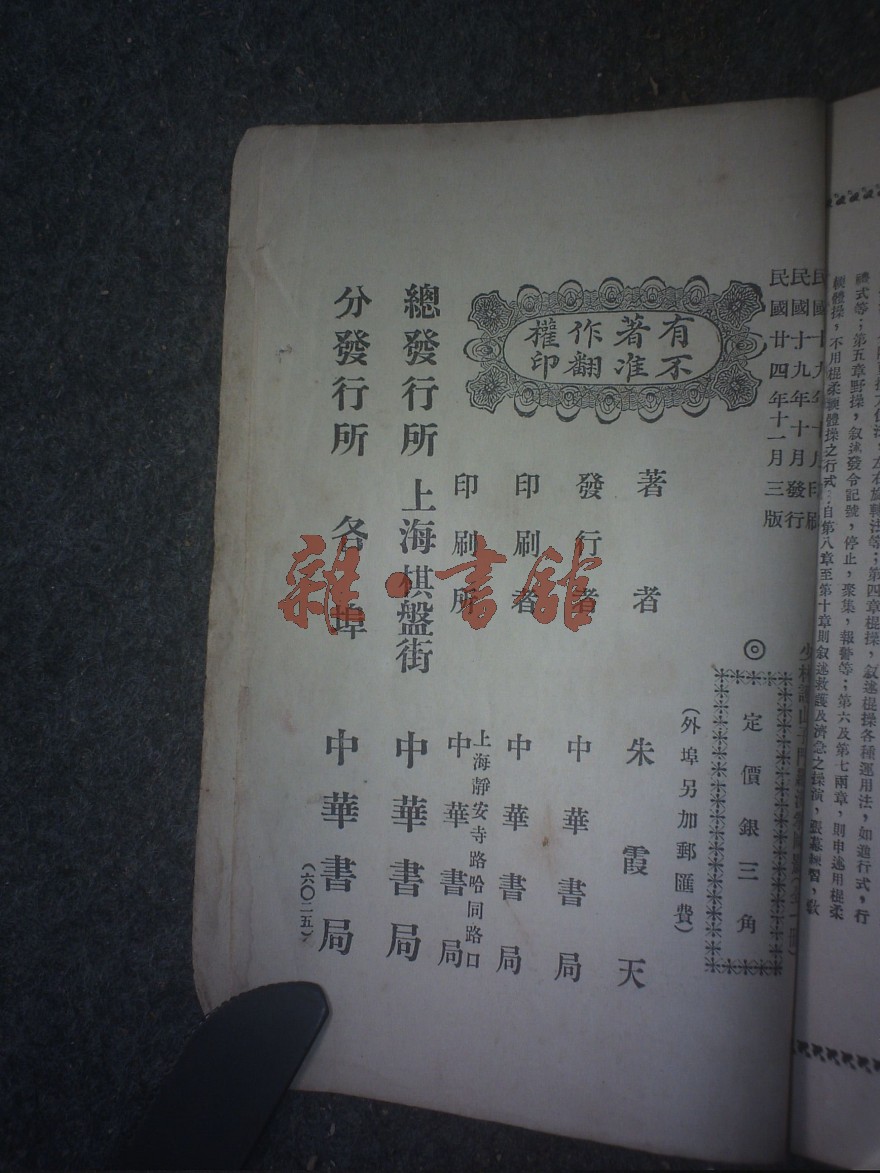 民國十九年十月印刷
民國十九年十月發行
民國廿四年十一月三版
◎定價銀三角
(外埠另加郵匯費)
有著作權
不准翻印
著者 朱霞天
發行者 中華書局
印刷者 中華書局
上海靜安寺路哈同路口
印刷所 中華書局
總發行所 上海棋盤街 中華書局
分發行所 各埠 中華書局
(六〇二五)
雜·書館
禮式等;第五章野操,敘述發令記號,停止,聚集,報警等;第六及第七兩章,則申述用棍柔
輭體操,不用棍柔輭體操之行式:自第八章至第十章則敘述救護及濟急之操演,張幕練習,救
左右旋轉法等;第四章棍操,敘述棍操各種運用法,如進行式,行